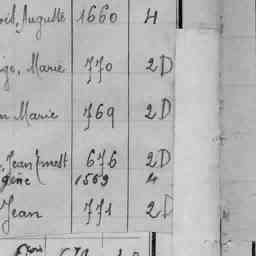 Auguste 1660 4
Marie 770 2D
Marie 769 2D
Jean Ernest 676 2D
gène 1569 4
Jean 771 2D